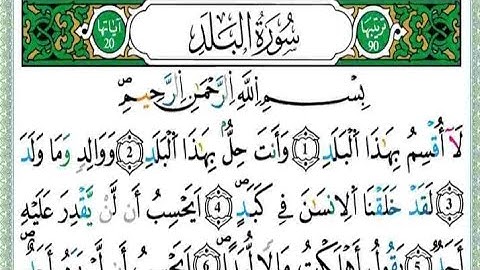 ترتيبها 90 سُورَةُ الْبَلَدِ آياتها 20
بِسْمِ اللَّهِ الرَّحْمَنِ الرَّحِيمِ
لَا أُقْسِمُ بِهَٰذَا الْبَلَدِ ١ وَأَنتَ حِلٌّ بِهَٰذَا الْبَلَدِ ٢ وَوَالِدٍ وَمَا وَلَدَ
٣ لَقَدْ خَلَقْنَا الْإِنسَانَ فِي كَبَدٍ ٤ أَيَحْسَبُ أَن لَّن يَقْدِرَ عَلَيْهِ
أَحَدٌ ٥ يَقُولُ أَهْلَكْتُ مَالًا لُّبَدًا ٦ أَيَحْسَبُ أَن لَّمْ يَرَهُ أَحَدٌ